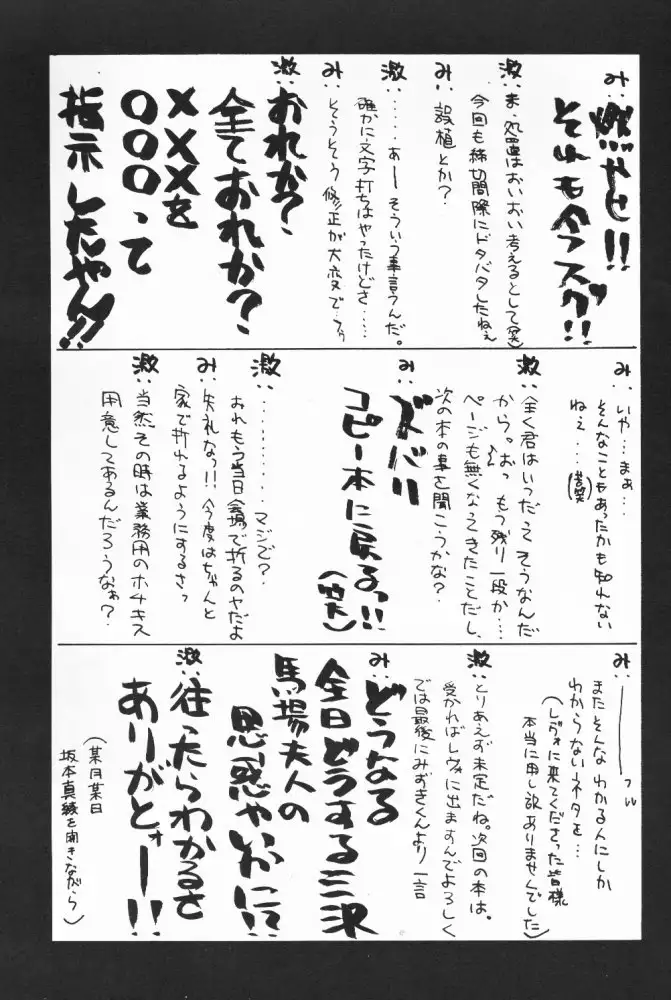 み：燃やせ!!
それも今スグ!!
激：ま、処置はおいおい考えるとして(笑)
今回も締切間際にドタバタしたねぇ
み：誤植とか？
激：……あーそういう事言うんだ。
確かに文字打ちはやったけどさ……
み：そうそう修正が大変で…って
激：おれか？
全ておれか？
×××を
○○○って
指示したやん!!
み：いや…まぁ…
そんなこともあったかも知れない
ねぇ…(苦笑)
激：全く君はいつだってそうなんだ
から。おっ、もう残り一段か……
ページも無くなってきたことだし、
次の本の事を聞こうかな？
み：ズバリ
コピー本に戻るっ!!
激：……………マジで？
おれもう当日会場で折るのヤだよ
み：失礼なっ!!今度はちゃんと
家で折れるようにするさっ
激：当然その時は業務用のホチキス
用意してあるんだろうなぁ？
み：――――フッ
またそんなわかる人にしか
わからないネタを…
(レヴォに来てくださった皆様
本当に申し訳ありませんでした)
激：とりあえず未定だね。次回の本は。
受かればレヴォに出ますんでよろしく
では最後にみずきくんより一言
み：どうなる
全日どうする三沢
馬場夫人の
思惑やいかに!?
激：往ったらわかるさ
ありがとォー!!
(某月某日
坂本真綾を聞きながら)